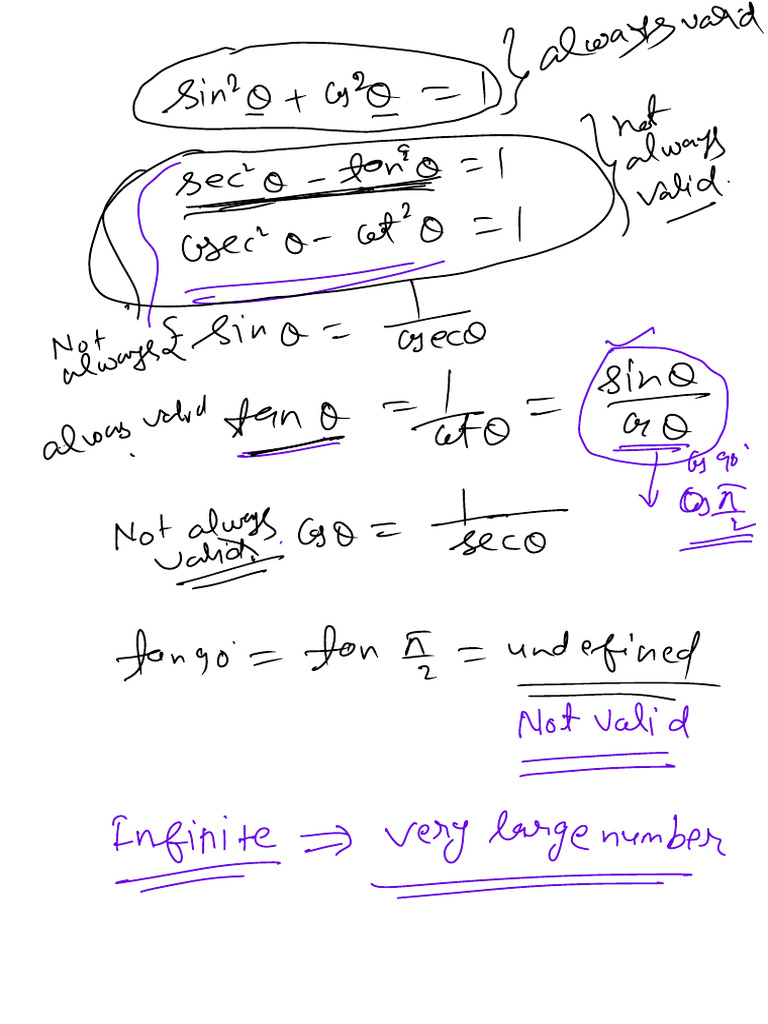 sin²θ + cos²θ = 1 } always valid
sec²θ - tan²θ = 1
cosec²θ - cot²θ = 1 } not always valid.
Not always { sinθ = 1/cosecθ
always valid tanθ = 1/cotθ = sinθ/cosθ
cos 90°
cos π/2
Not always valid. cosθ = 1/secθ
tan 90° = tan π/2 = undefined
Not valid
Infinite ⇒ very large number